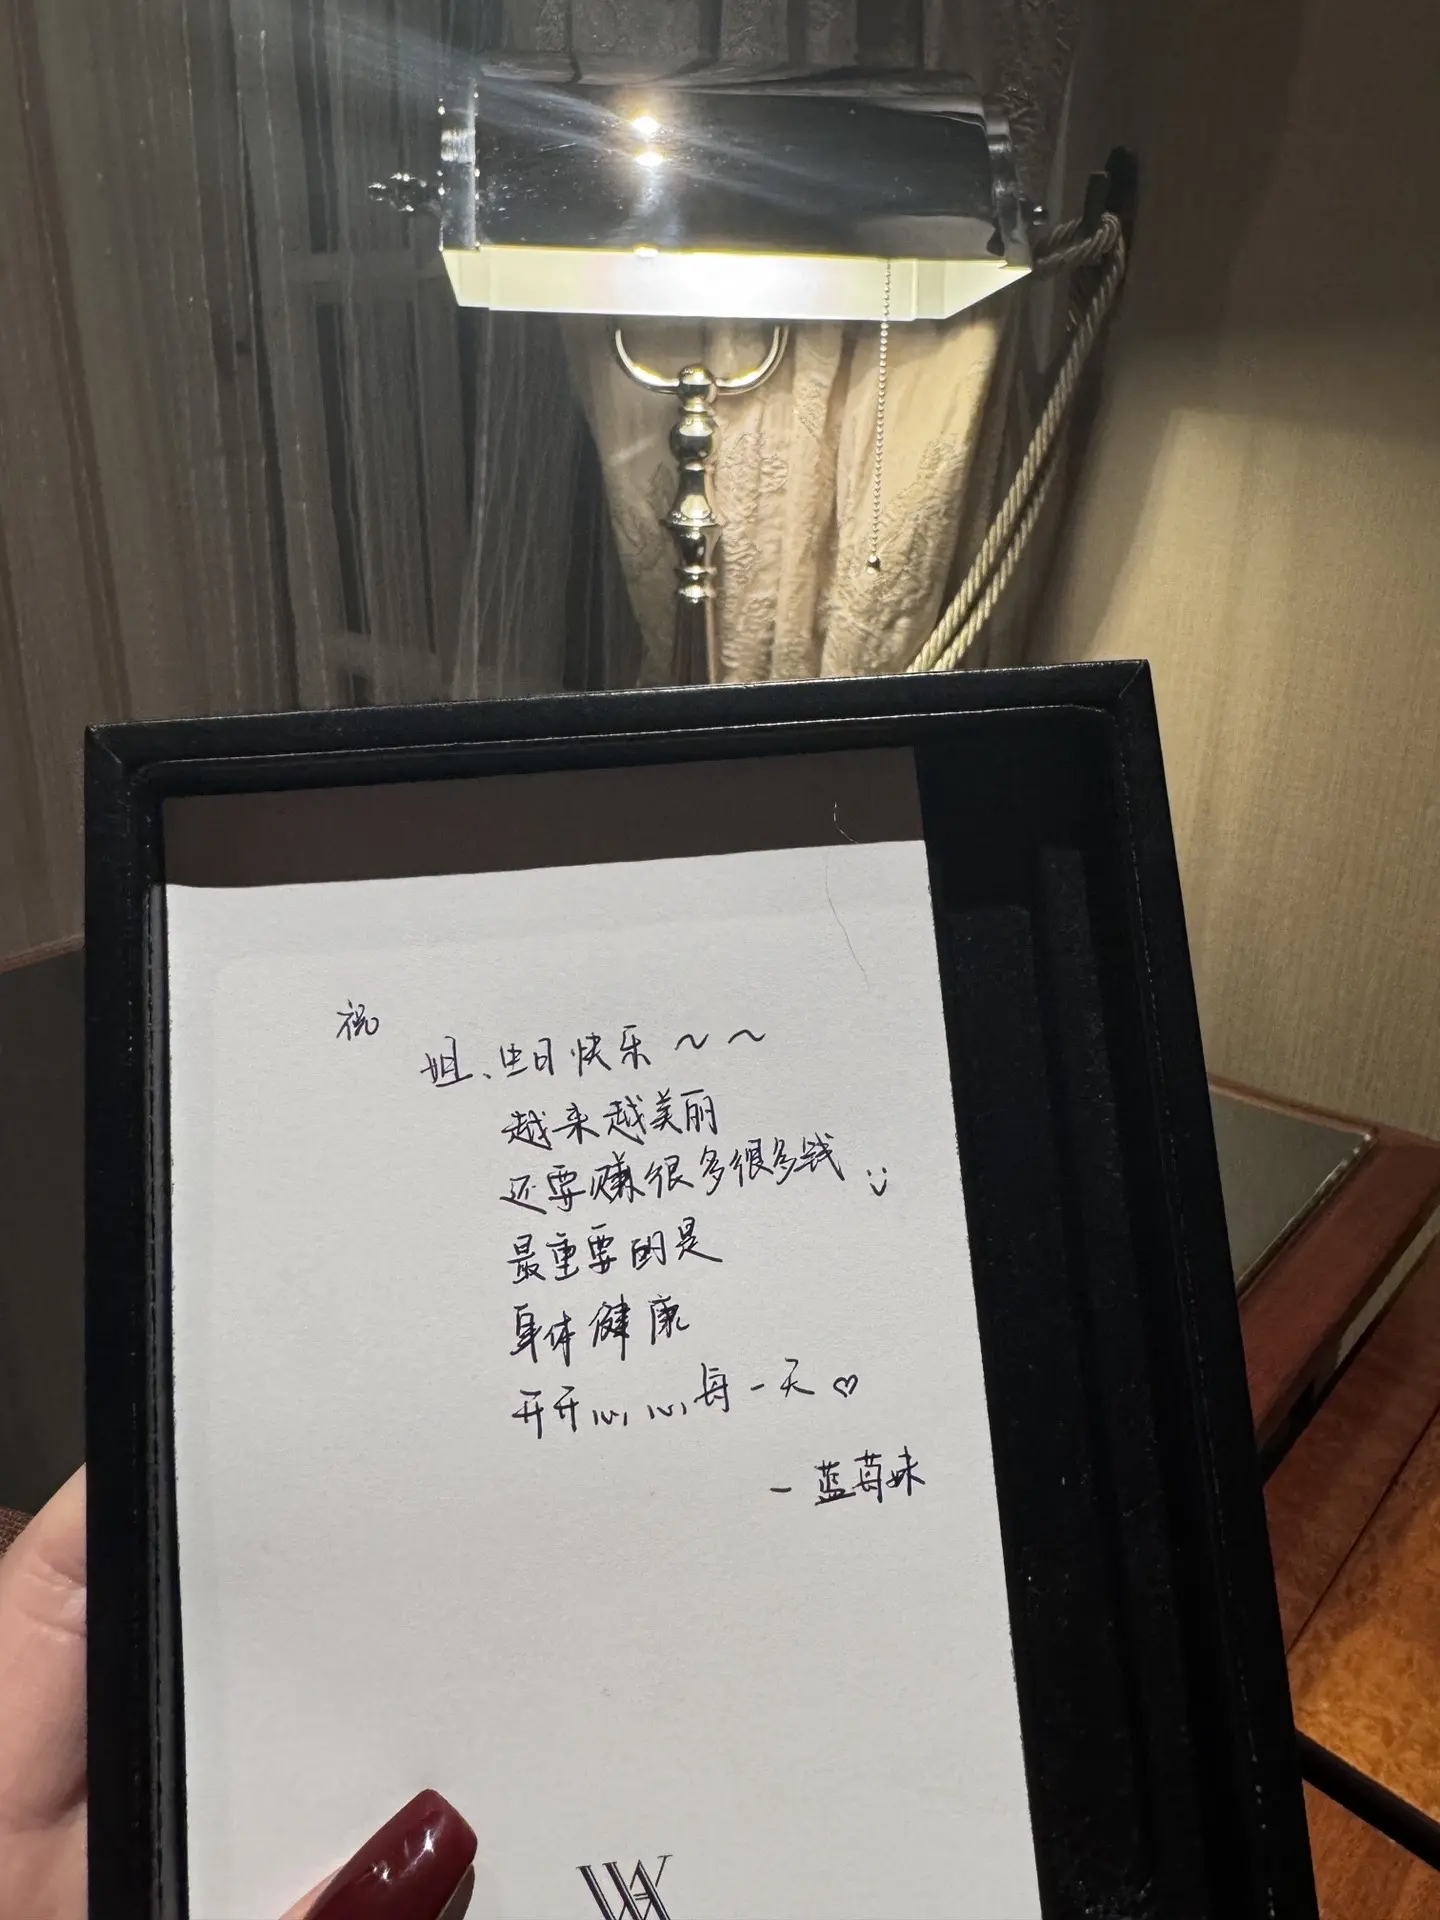 祝
姐、生日快乐~~
越来越美丽
还要赚很多很多钱
最重要的是
身体健康
开开心心每一天♡
- 蓝莓妹